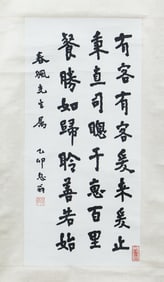 有客有客爰來爰止
秉直司聰于惠百里
餐勝如歸聆善若始
春楓先生属
乙卯